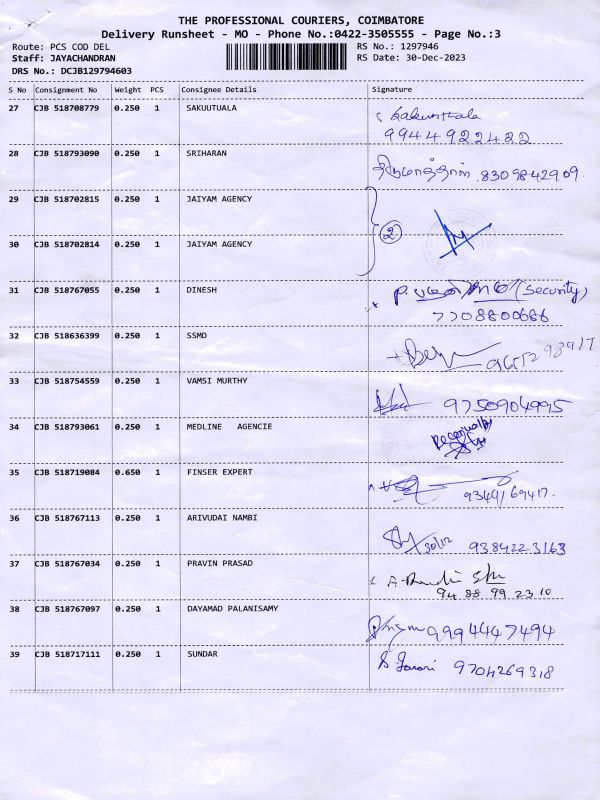 THE PROFESSIONAL COURIERS, COIMBATORE
Delivery Runsheet - MO - Phone No.:0422-3505555 - Page No.:3
Route: PCS COD DEL
RS No.: 1297946
Staff: JAYACHANDRAN
RS Date: 30-Dec-2023
DRS No.: DCJB129794603
S No Consignment No Weight PCS Consignee Details Signature
27 CJB 518708779 0.250 1 SAKUUTUALA Sakunthala
9944922422
28 CJB 518793090 0.250 1 SRIHARAN 8309842909.
29 CJB 518702815 0.250 1 JAIYAM AGENCY
2
30 CJB 518702814 0.250 1 JAIYAM AGENCY
31 CJB 518767055 0.250 1 DINESH (Security)
7708800686
32 CJB 518636399 0.250 1 SSMD
33 CJB 518754559 0.250 1 VAMSI MURTHY 9750904995
34 CJB 518793061 0.250 1 MEDLINE AGENCIE
35 CJB 518719084 0.650 1 FINSER EXPERT
9344169417.
36 CJB 518767113 0.250 1 ARIVUDAI NAMBI 30/12 9384223163
37 CJB 518767034 0.250 1 PRAVIN PRASAD
94 88 99 23 10
38 CJB 518767097 0.250 1 DAYAMAD PALANISAMY 9994447494
39 CJB 518717111 0.250 1 SUNDAR 9704269318